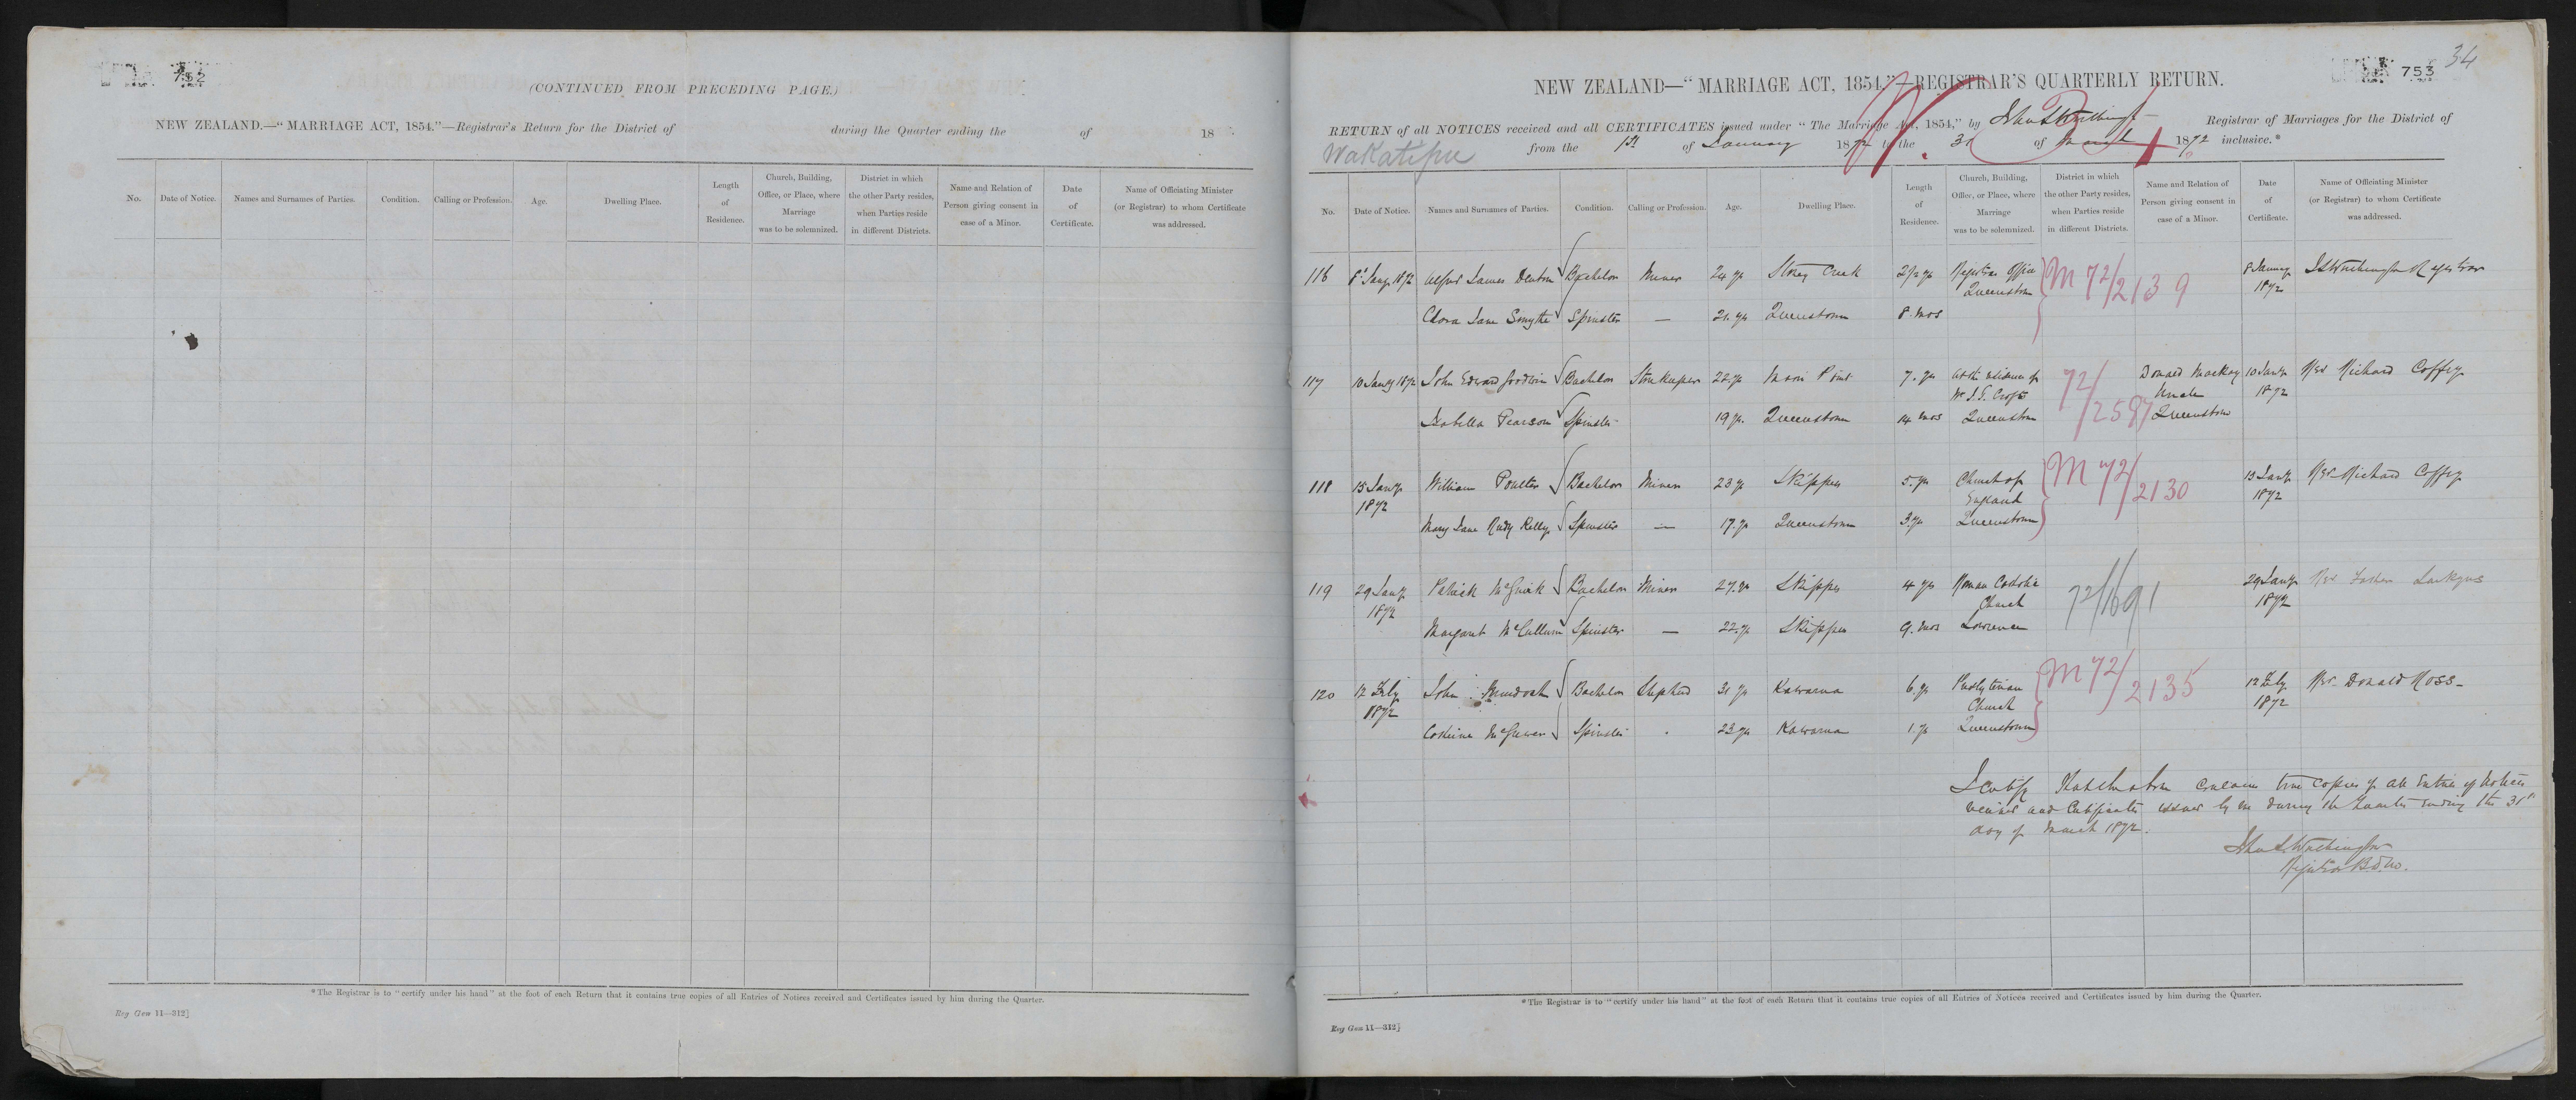 752
(CONTINUED FROM PRECEDING PAGE.)
NEW ZEALAND.—“MARRIAGE ACT, 1854.”—Registrar's Return for the District of during the Quarter ending the of 18
No. Date of Notice. Names and Surnames of Parties. Condition. Calling or Profession. Age. Dwelling Place. Length of Residence. Church, Building, Office, or Place, where Marriage was to be solemnized. District in which the other Party resides, when Parties reside in different Districts. Name and Relation of Person giving consent in case of a Minor. Date of Certificate. Name of Officiating Minister (or Registrar) to whom Certificate was addressed.
*The Registrar is to “certify under his hand” at the foot of each Return that it contains true copies of all Entries of Notices received and Certificates issued by him during the Quarter.
Reg Gen 11—312]
753
34
NEW ZEALAND—“MARRIAGE ACT, 1854.”—REGISTRAR'S QUARTERLY RETURN.
RETURN of all NOTICES received and all CERTIFICATES issued under “The Marriage Act, 1854,” by Registrar of Marriages for the District of
Wakatipu from the 1st of January 1872 to the 31 of March 1872 inclusive.*
No. Date of Notice. Names and Surnames of Parties. Condition. Calling or Profession. Age. Dwelling Place. Length of Residence. Church, Building, Office, or Place, where Marriage was to be solemnized. District in which the other Party resides, when Parties reside in different Districts. Name and Relation of Person giving consent in case of a Minor. Date of Certificate. Name of Officiating Minister (or Registrar) to whom Certificate was addressed.
116 8 Jany 1872 James Denton Bachelor Miner 24 yr Creek 2½ yr Registrar Office M 72/2139 8 January Registrar
Queenstown 1872
Clara Jane Smythe Spinster — 21 yr Queenstown 8 mos
117 10 Jany 1872 John Edward Goodwin Bachelor Storekeeper 22 yr Maori Point 7 yr At the residence of 72/2587 Donald Mackay 10 Jany Rev Richard Coffey
Mr J. T. Crofts Uncle 1872
Isabella Pearson Spinster 19 yr Queenstown 14 mos Queenstown Queenstown
118 15 Jany William Poulter Bachelor Miner 23 yr Skippers 5 yr Church of M 72/2130 15 Jany Rev Richard Coffey
1872 England 1872
Mary Jane Kelly Spinster — 17 yr Queenstown 3 yr Queenstown
119 29 Jany Patrick McGuirk Bachelor Miner 27 yr Skippers 4 yr Roman Catholic 72/1691 29 Jany Rev Father
1872 Church 1872
Margaret McCullum Spinster — 22 yr Skippers 9 mos Lawrence
120 12 Feby John Murdoch Bachelor Shepherd 31 yr Kawarau 6 yr Presbyterian M 72/2135 12 Feby Rev Donald Ross
1872 Church 1872
Spinster 23 yr Kawarau 1 yr Queenstown
I certify that the above contains true copies of all Entries of Notices
received and Certificates issued by me during the Quarter ending the 31st
day of March 1872.
Registrar
*The Registrar is to “certify under his hand” at the foot of each Return that it contains true copies of all Entries of Notices received and Certificates issued by him during the Quarter.
Reg Gen 11—312]